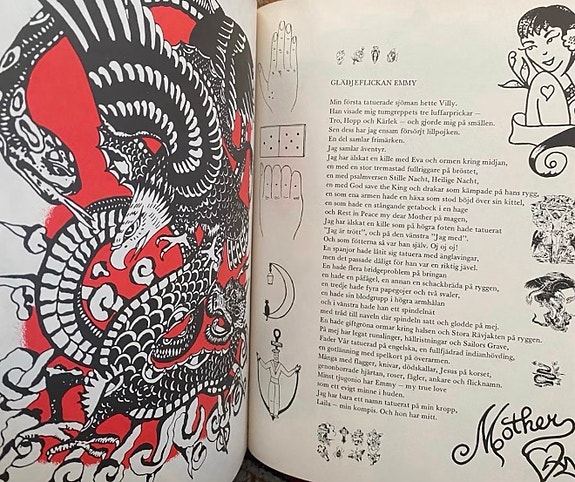 GLÄDJEFLICKAN EMMY
Min första tatuerade sjöman hette Villy.
Han visade mig tumgreppets tre luffarprickar –
Tro, Hopp och Kärlek – och gjorde mig på smällen.
Sen dess har jag ensam försörjt lillpojken.
En del samlar frimärken.
Jag samlar äventyr.
Jag har älskat en kille med Eva och ormen kring midjan,
en med en stor trestmastad fullriggare på bröstet,
en med psalmversen Stille Nacht, Heilige Nacht,
en med God save the King och drakar som kämpade på hans rygg,
en som ena armen hade en häxa som stod böjd över sin kittel,
en som hade en stångande getabock i en hage
och Rest in Peace my dear Mother på magen,
Jag har älskat en kille som på högra foten hade tatuerat
"Jag är trött", och på den vänstra "Jag med".
Och som fötterna så var han själv. Oj oj oj!
En spanjor hade låtit sig tatuera med änglavingar,
men det passade dåligt för han var en riktig jävel.
En hade flera bridgeproblem på bringan
en hade en påfågel, en annan en schackbräda på ryggen,
en tredje hade fyra papegojer och två svalor,
en hade sin blodgrupp i högra armhålan
och i vänstra hade han ett spindelnät
med tråd till naveln där spindeln satt och glodde på mej.
En hade giftgröna ormar kring halsen och Stora Rävjakten på ryggen.
På mej har legat runslingor, hällristningar och Sailors Grave,
Fader Vår tatuerad på engelska, en fullfjädrad indianhövding,
en gotlänning med spelkort på överarmen.
Många med flaggor, knivar, dödskallar, Jesus på korset,
genomborrade hjärtan, rosor, fåglar, ankare och flicknamn.
Minst tjugonio har Emmy – my true love
som ett evigt minne i huden.
Jag har bara ett namn tatuerat på min kropp,
Laila – min kompis. Och hon har mitt.
Mother